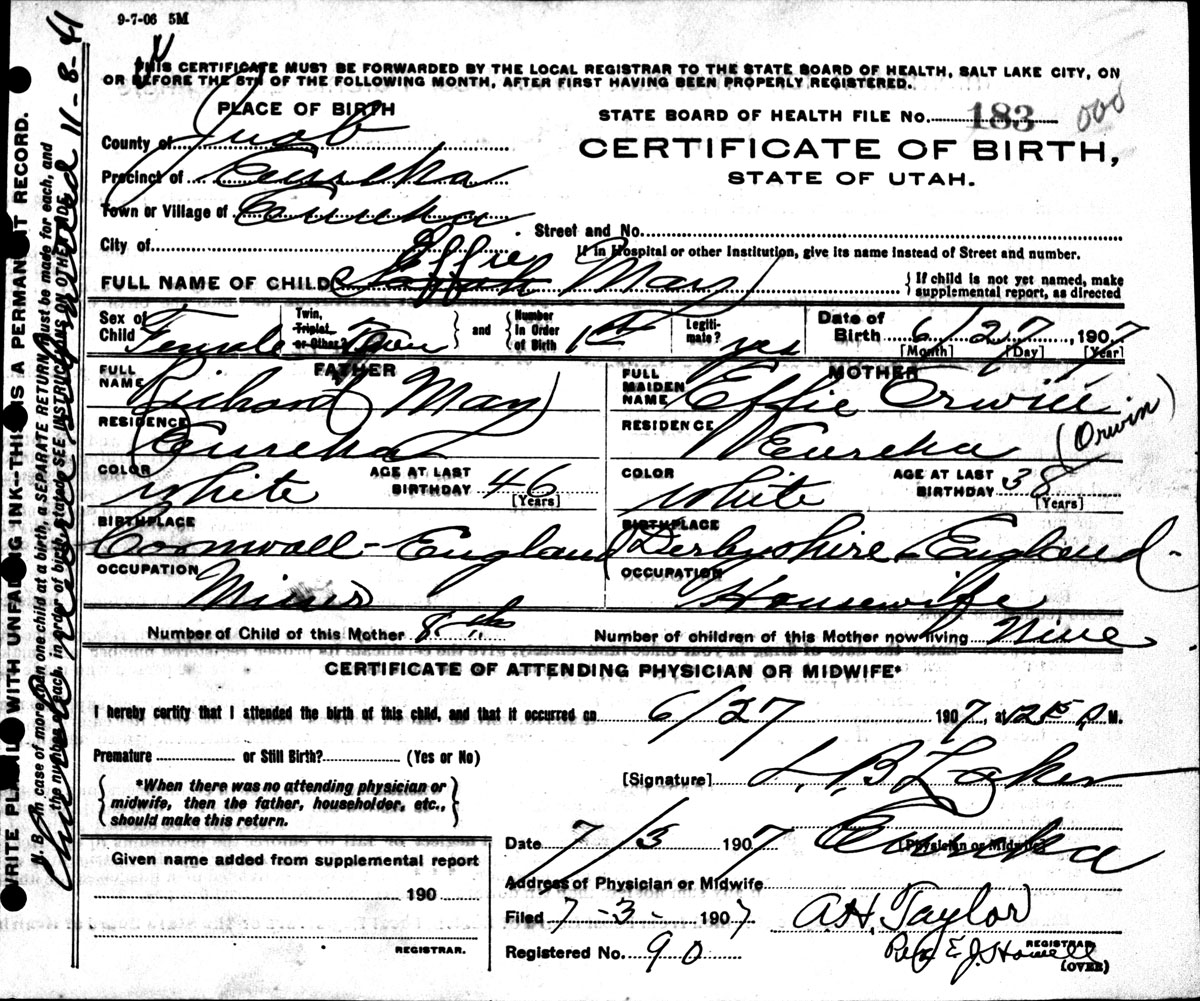 9-7-06 5M
THIS CERTIFICATE MUST BE FORWARDED BY THE LOCAL REGISTRAR TO THE STATE BOARD OF HEALTH, SALT LAKE CITY, ON
OR BEFORE THE 5TH OF THE FOLLOWING MONTH, AFTER FIRST HAVING BEEN PROPERLY REGISTERED.
PLACE OF BIRTH
STATE BOARD OF HEALTH FILE No. 183 000
County of Juab
CERTIFICATE OF BIRTH,
Precinct of Eureka
STATE OF UTAH.
Town or Village of Eureka
Street and No.
City of
If in Hospital or other Institution, give its name instead of Street and number.
Effie
FULL NAME OF CHILD May
{ If child is not yet named, make supplemental report, as directed
Sex of Child Female
Twin, Triplet, or Other? Twin } and { Number in Order of Birth 1st
Legiti- mate? yes
Date of Birth 6/27, 1907
[Month] [Day] [Year]
FATHER
FULL NAME Richard May
RESIDENCE Eureka
COLOR White AGE AT LAST BIRTHDAY 46 [Years]
BIRTHPLACE Cornwall - England
OCCUPATION Miner
MOTHER
FULL MAIDEN NAME Effie Orwin
(Orwin)
RESIDENCE Eureka
COLOR White AGE AT LAST BIRTHDAY 38 [Years]
BIRTHPLACE Derbyshire England -
OCCUPATION Housewife
Number of Child of this Mother 8th Number of children of this Mother now living Nine
CERTIFICATE OF ATTENDING PHYSICIAN OR MIDWIFE*
I hereby certify that I attended the birth of this child, and that it occurred on 6/27 1907, at P. M.
Premature or Still Birth? (Yes or No)
{ *When there was no attending physician or
midwife, then the father, householder, etc.,
should make this return. }
[Signature] L. B. Laker
Date 7/3 1907 Eureka
[Physician or Midwife]
Address of Physician or Midwife
Given name added from supplemental report
190
REGISTRAR.
Filed 7-3- 1907 A.H. Taylor
Registered No. 90 Per E J Howell
REGISTRAR
(OVER)
WRITE PLAINLY WITH UNFADING INK--THIS IS A PERMANENT RECORD.
N. B. In case of more than one child at a birth, a SEPARATE RETURN must be made for each, and
the number of each, in order of birth, stated. SEE INSTRUCTIONS ON OTHER SIDE.
11-8-41